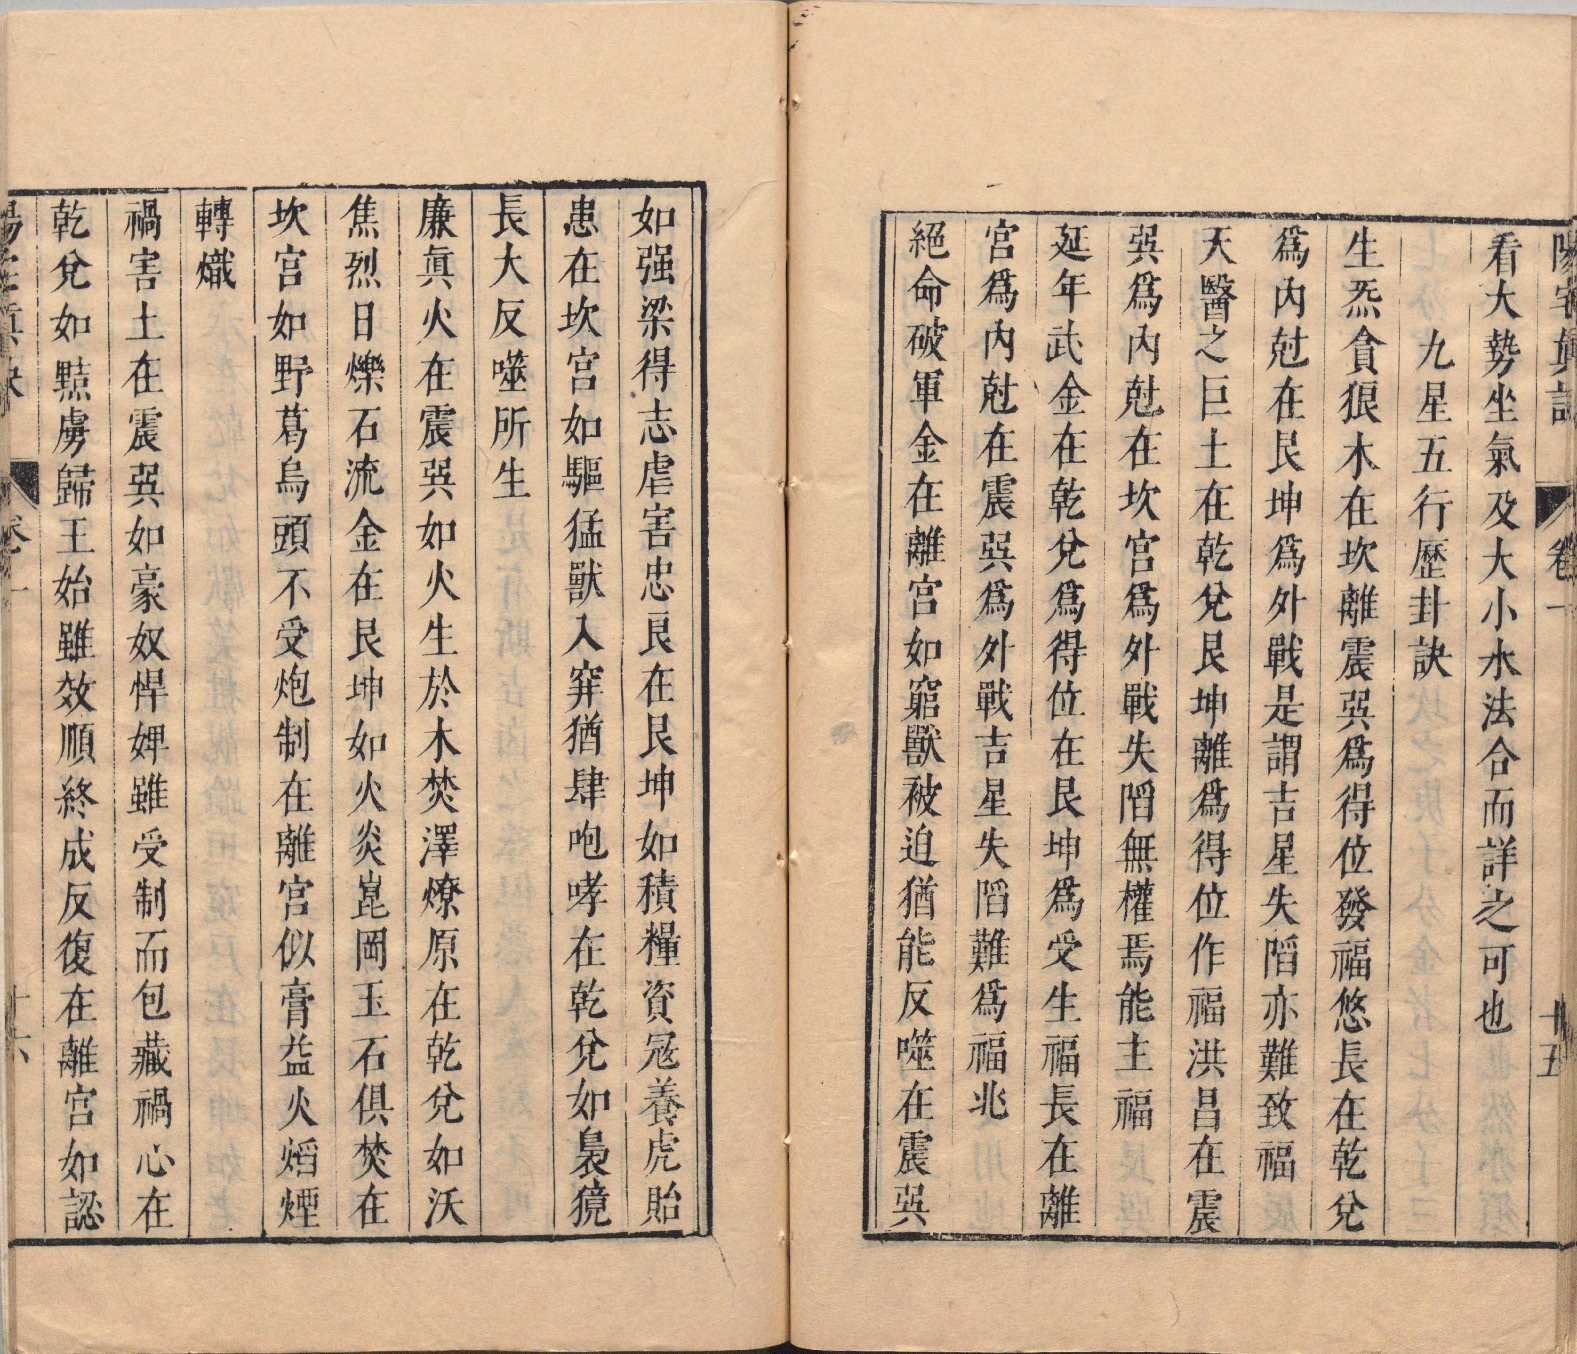 陽宅眞訣 卷一 十五
看大勢坐氣及大小水法合而詳之可也
九星五行歷卦訣
生炁貪狼木在坎離震巽爲得位發福悠長在乾兌
爲內尅在艮坤爲外戰是謂吉星失䧟亦難致福
天醫之巨土在乾兌艮坤離爲得位作福洪昌在震
巽爲內尅在坎宮爲外戰失䧟無權焉能主福
延年武金在乾兌爲得位在艮坤爲受生福長在離
宮爲內尅在震巽爲外戰吉星失䧟難爲福兆
絕命破軍金在離宮如窮獸被迫猶能反噬在震巽
如强梁得志虐害忠良在艮坤如積糧資冦養虎貽
患在坎宮如驅猛獸入穽猶肆咆哮在乾兌如裊獍
長大反噬所生
廉眞火在震巽如火生於木焚澤燎原在乾兌如沃
焦烈日爍石流金在艮坤如火炎崑岡玉石俱焚在
坎宮如野葛烏頭不受炮制在離宮似膏益火熖煙
轉熾
禍害土在震巽如豪奴悍婢雖受制而包藏禍心在
乾兌如黠虜歸王始雖效順終成反復在離宮如認
陽宅眞訣 卷一 十六